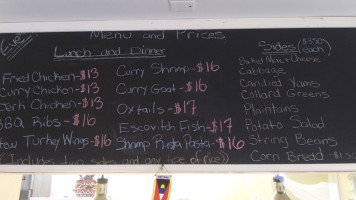 Menu and Prices
Lunch and Dinner
Fried Chicken-$13
Curry Chicken-$13
Jerk Chicken-$13
BBQ Ribs-$16
Stew Turkey Wings-$16
Curry Shrimp-$16
Curry Goat-$16
Oxtails-$17
Escovitch Fish-$17
Shrimp Pasta-$16
(Includes two sides and any type of rice)
Sides ($3.50 each)
Baked Mac+Cheese
Cabbage
Candied Yams
Collard Greens
Plantains
Potato Salad
String Beans
Corn Bread